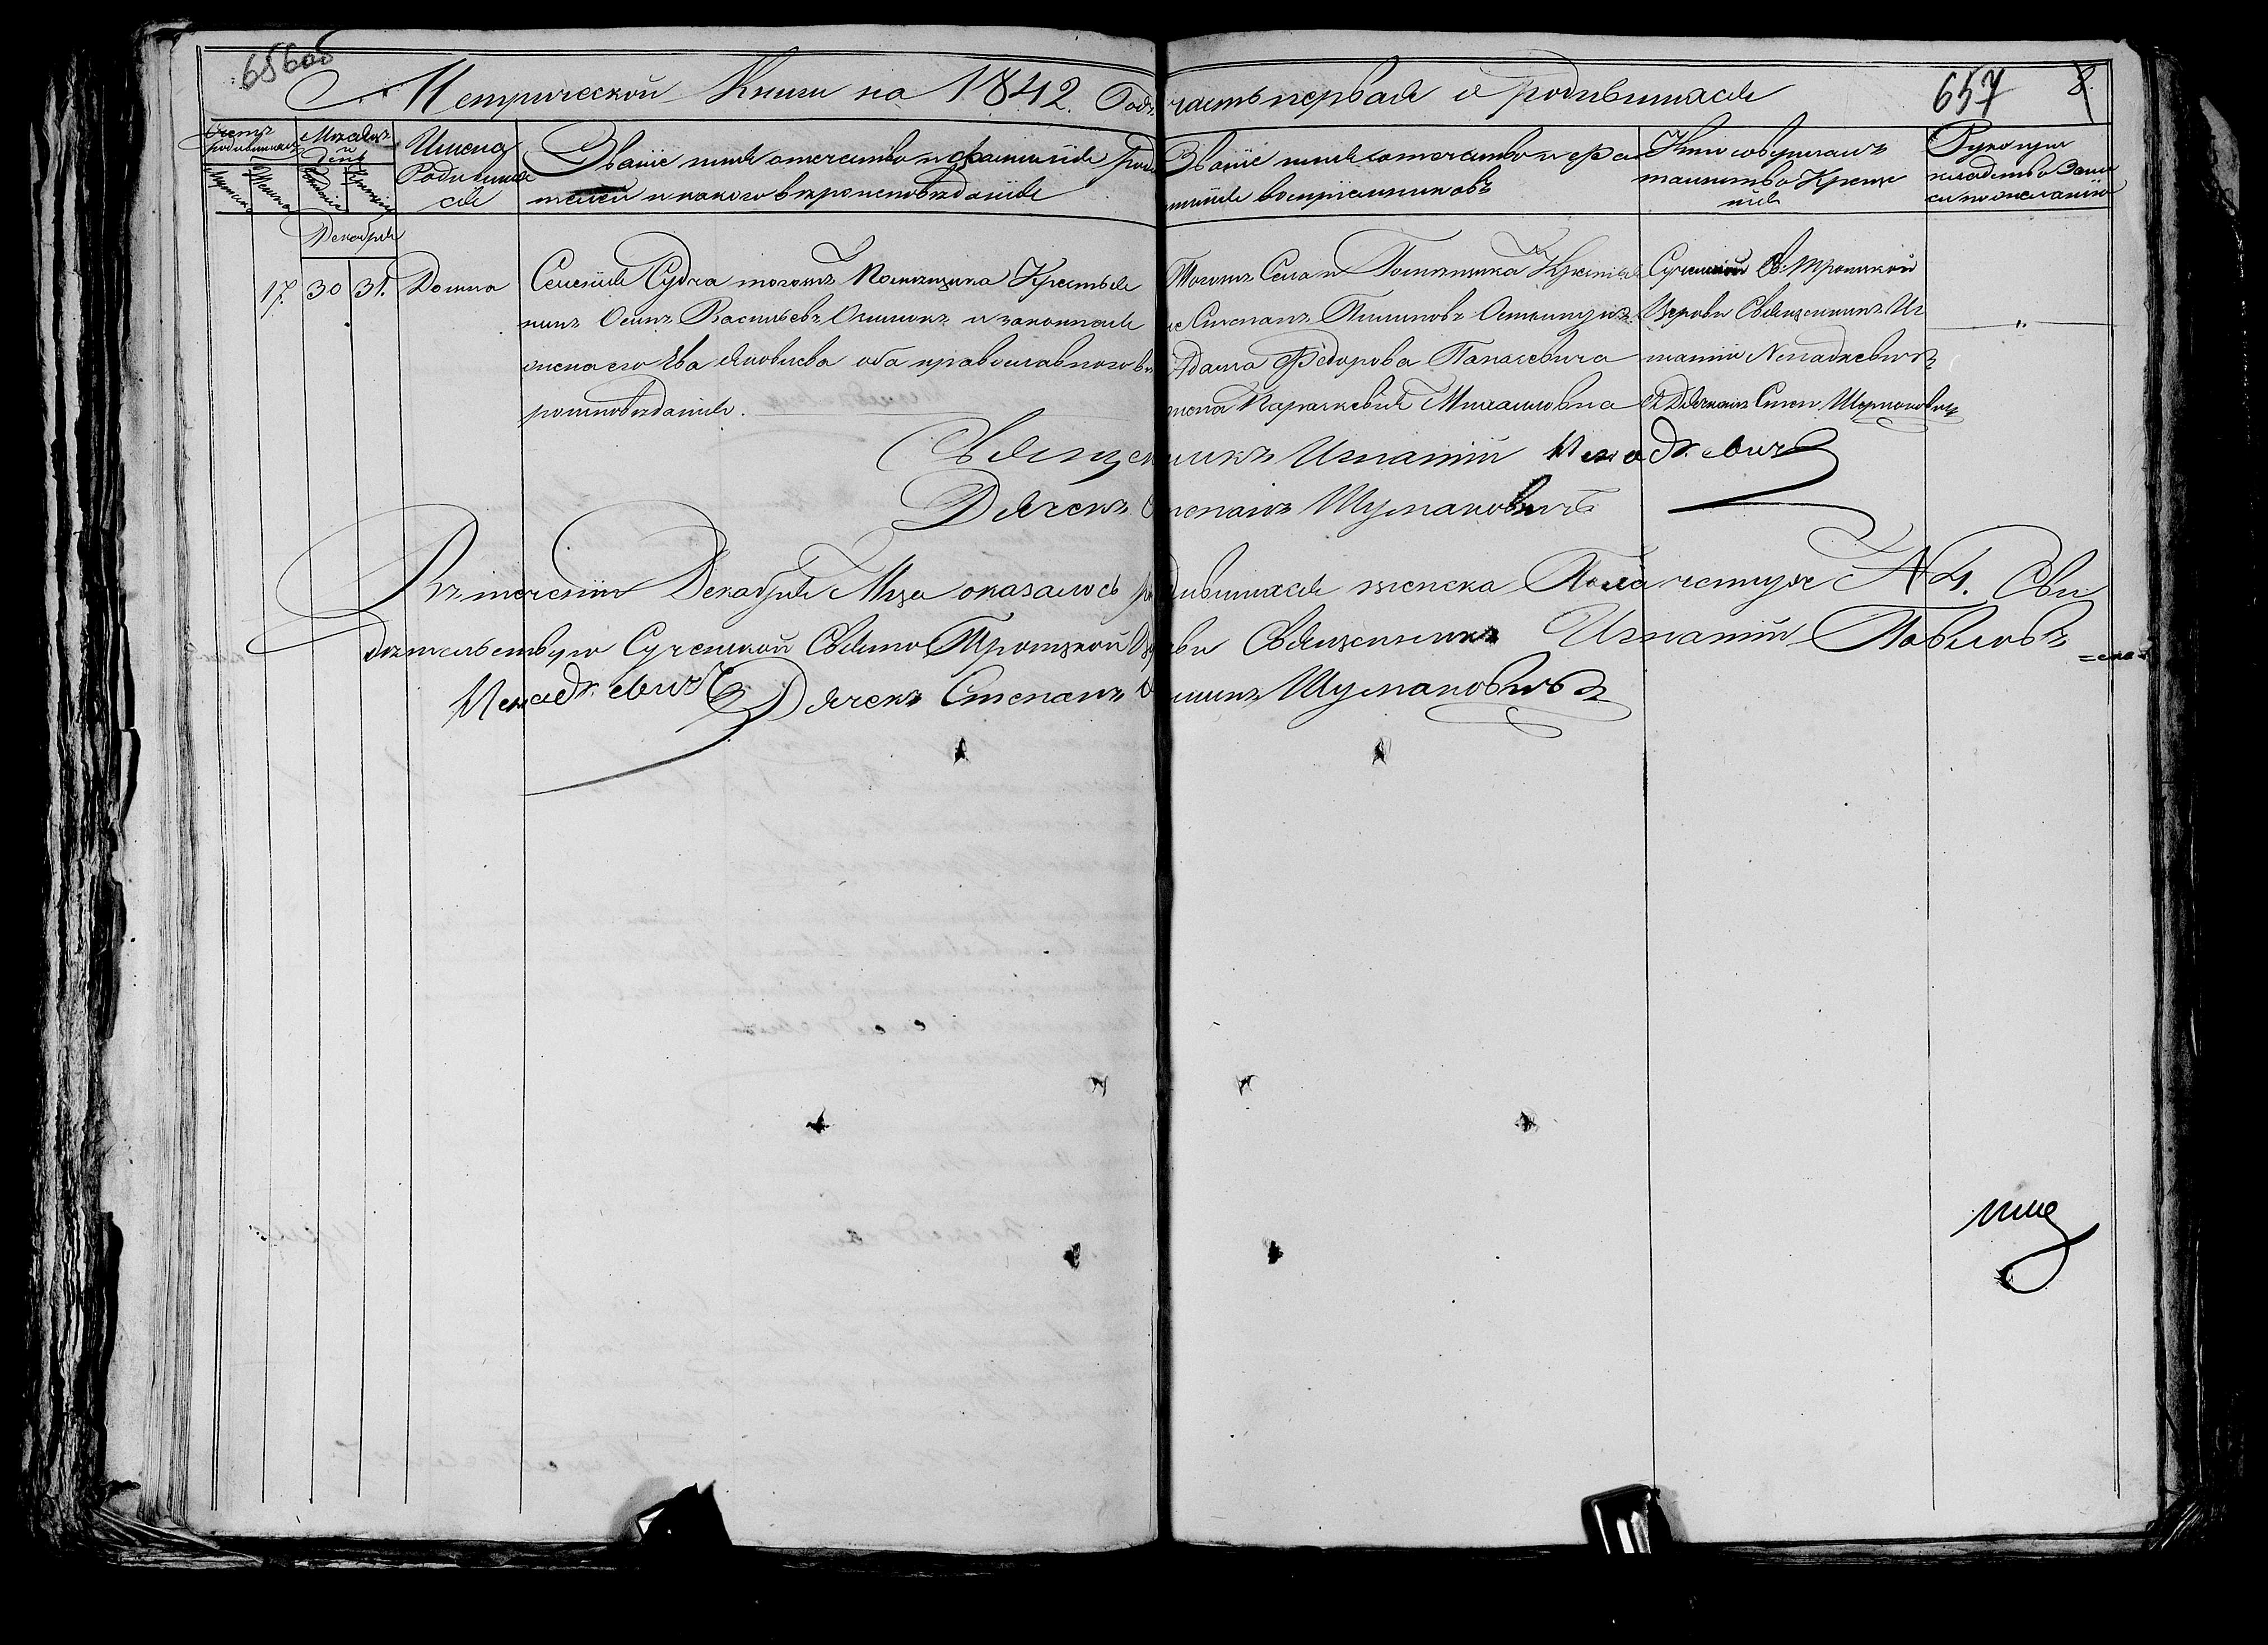 656об
Метрической Книги на 1842. Годъ часть первая о родившихся
657 8.
Счетъ родившихся
Мужеска
Женска
Мѣсяцъ и день
Рожденіе
Крещеніе
Имена Родившихся
Званіе имя отечество и фамилія роди
телей и какого вѣроисповѣданія
Званіе имя отечество и фа
милія воспріемниковъ
Кто совершалъ
таинство Креще
нія
Рукопри
кладство Запи
си по желанію
Декабря
17. 30 31. Домна
Селенія Судча тогожъ Помѣщика Крестья
нинъ Осипъ Васильевъ и законная
жена его Ева Яковлева оба православного вѣ
роисповѣданія.
Тогожъ Села и Помѣщика Крестья
Степанъ
Адама Федорова Панасевича
жена Параскевія Михаиловна
Св. Троицкой
Церкви Священникъ Иг
натій Ненадкевичъ
съ Дьячкомъ Степ. Шумановичъ
Священникъ Игнатій Ненадкевичъ
Дьячекъ Степанъ Шумановичъ
Въ теченіи Декабря Мца оказалось родившихся женска Пола четыре N 4. Сви
дѣтельствую Свято Троицкой Церкви Священникъ Игнатій Павловъ
Ненадкевичъ Дьячекъ Степанъ Шумановичъ